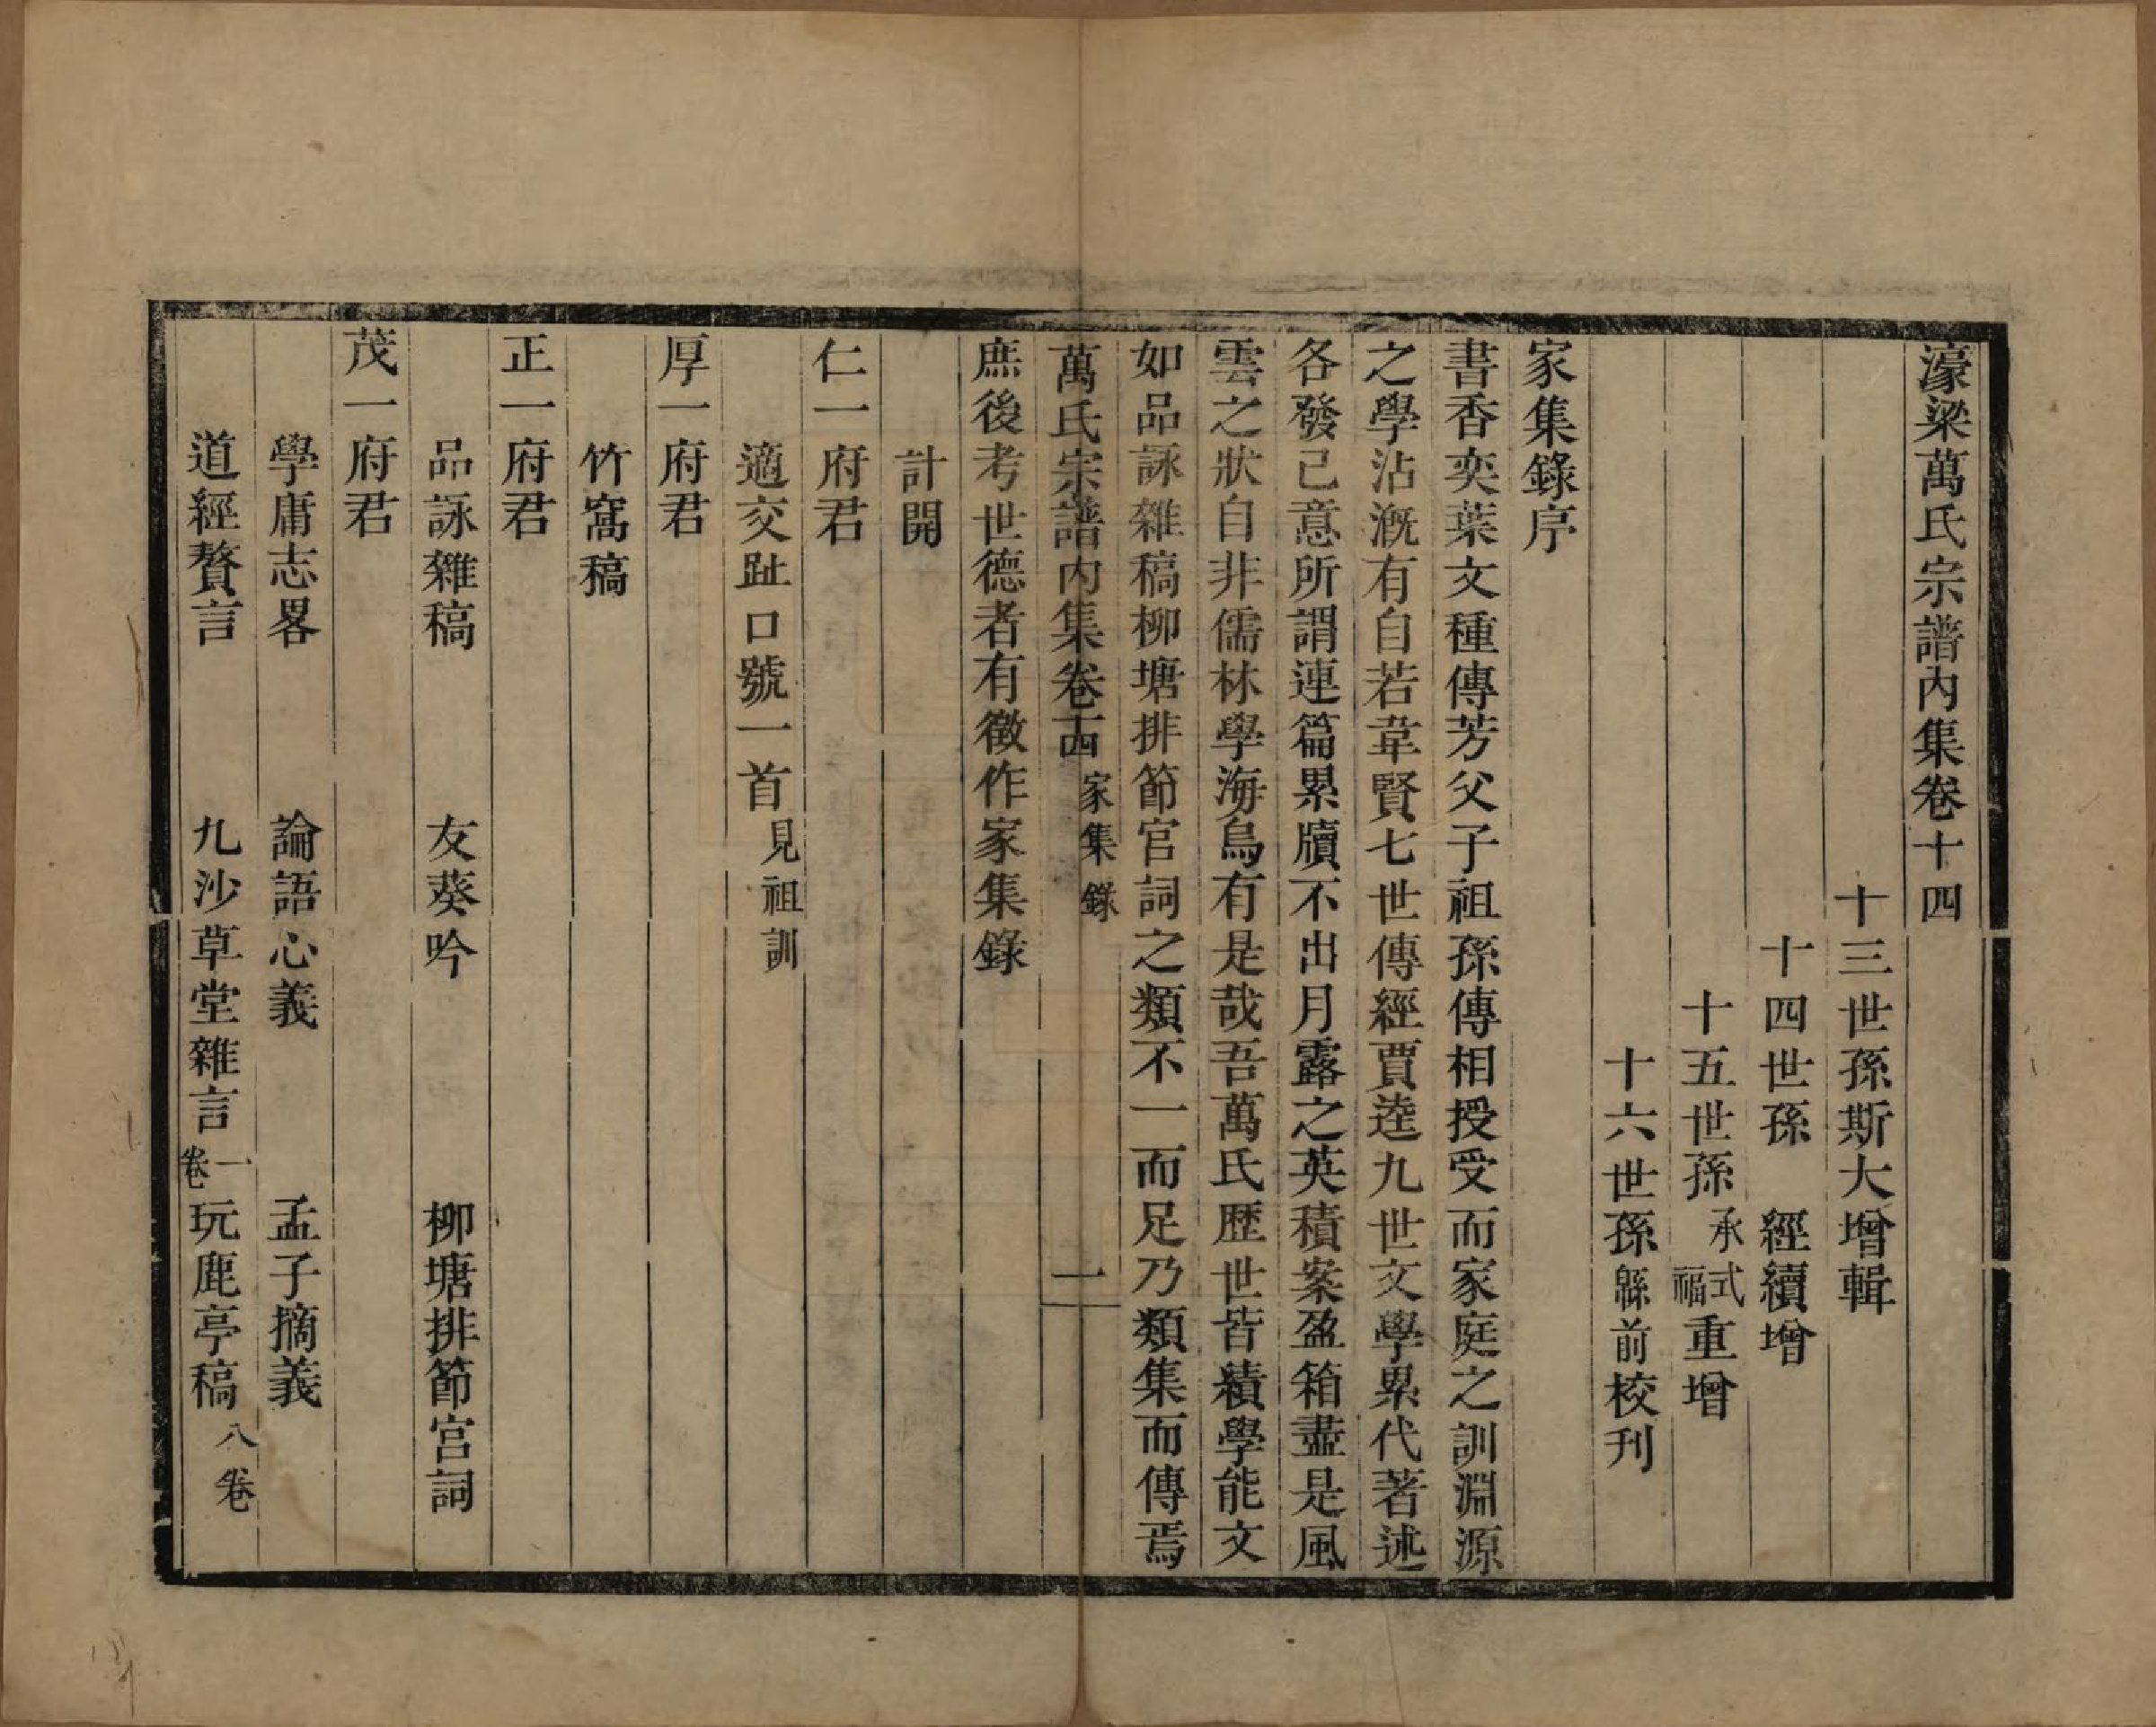 濠梁萬氏宗譜內集卷十四
十三世孫斯大增輯
十四世孫　經續增
十五世孫承式福重增
十六世孫緜前校刊
家集錄序
書香奕葉文種傳芳父子祖孫傳相授受而家庭之訓淵源
之學沾漑有自若韋賢七世傳經賈逵九世文學累代著述
各發己意所謂連篇累牘不出月露之英積案盈箱盡是風
雲之狀自非儒林學海烏有是哉吾萬氏歷世皆績學能文
如品詠雜稿柳塘排節宮詞之類不一而足乃類集而傳焉
萬氏宗譜內集卷十四　家集錄　一
庶後考世德者有徵作家集錄
計開
仁一府君
適交趾口號一首見祖訓
厚一府君
竹窩稿
正一府君
品詠雜稿　友葵吟　柳塘排節宮詞
茂一府君
學庸志畧　論語心義　孟子摘義
道經贅言　九沙草堂雜言一卷玩鹿亭稿八卷